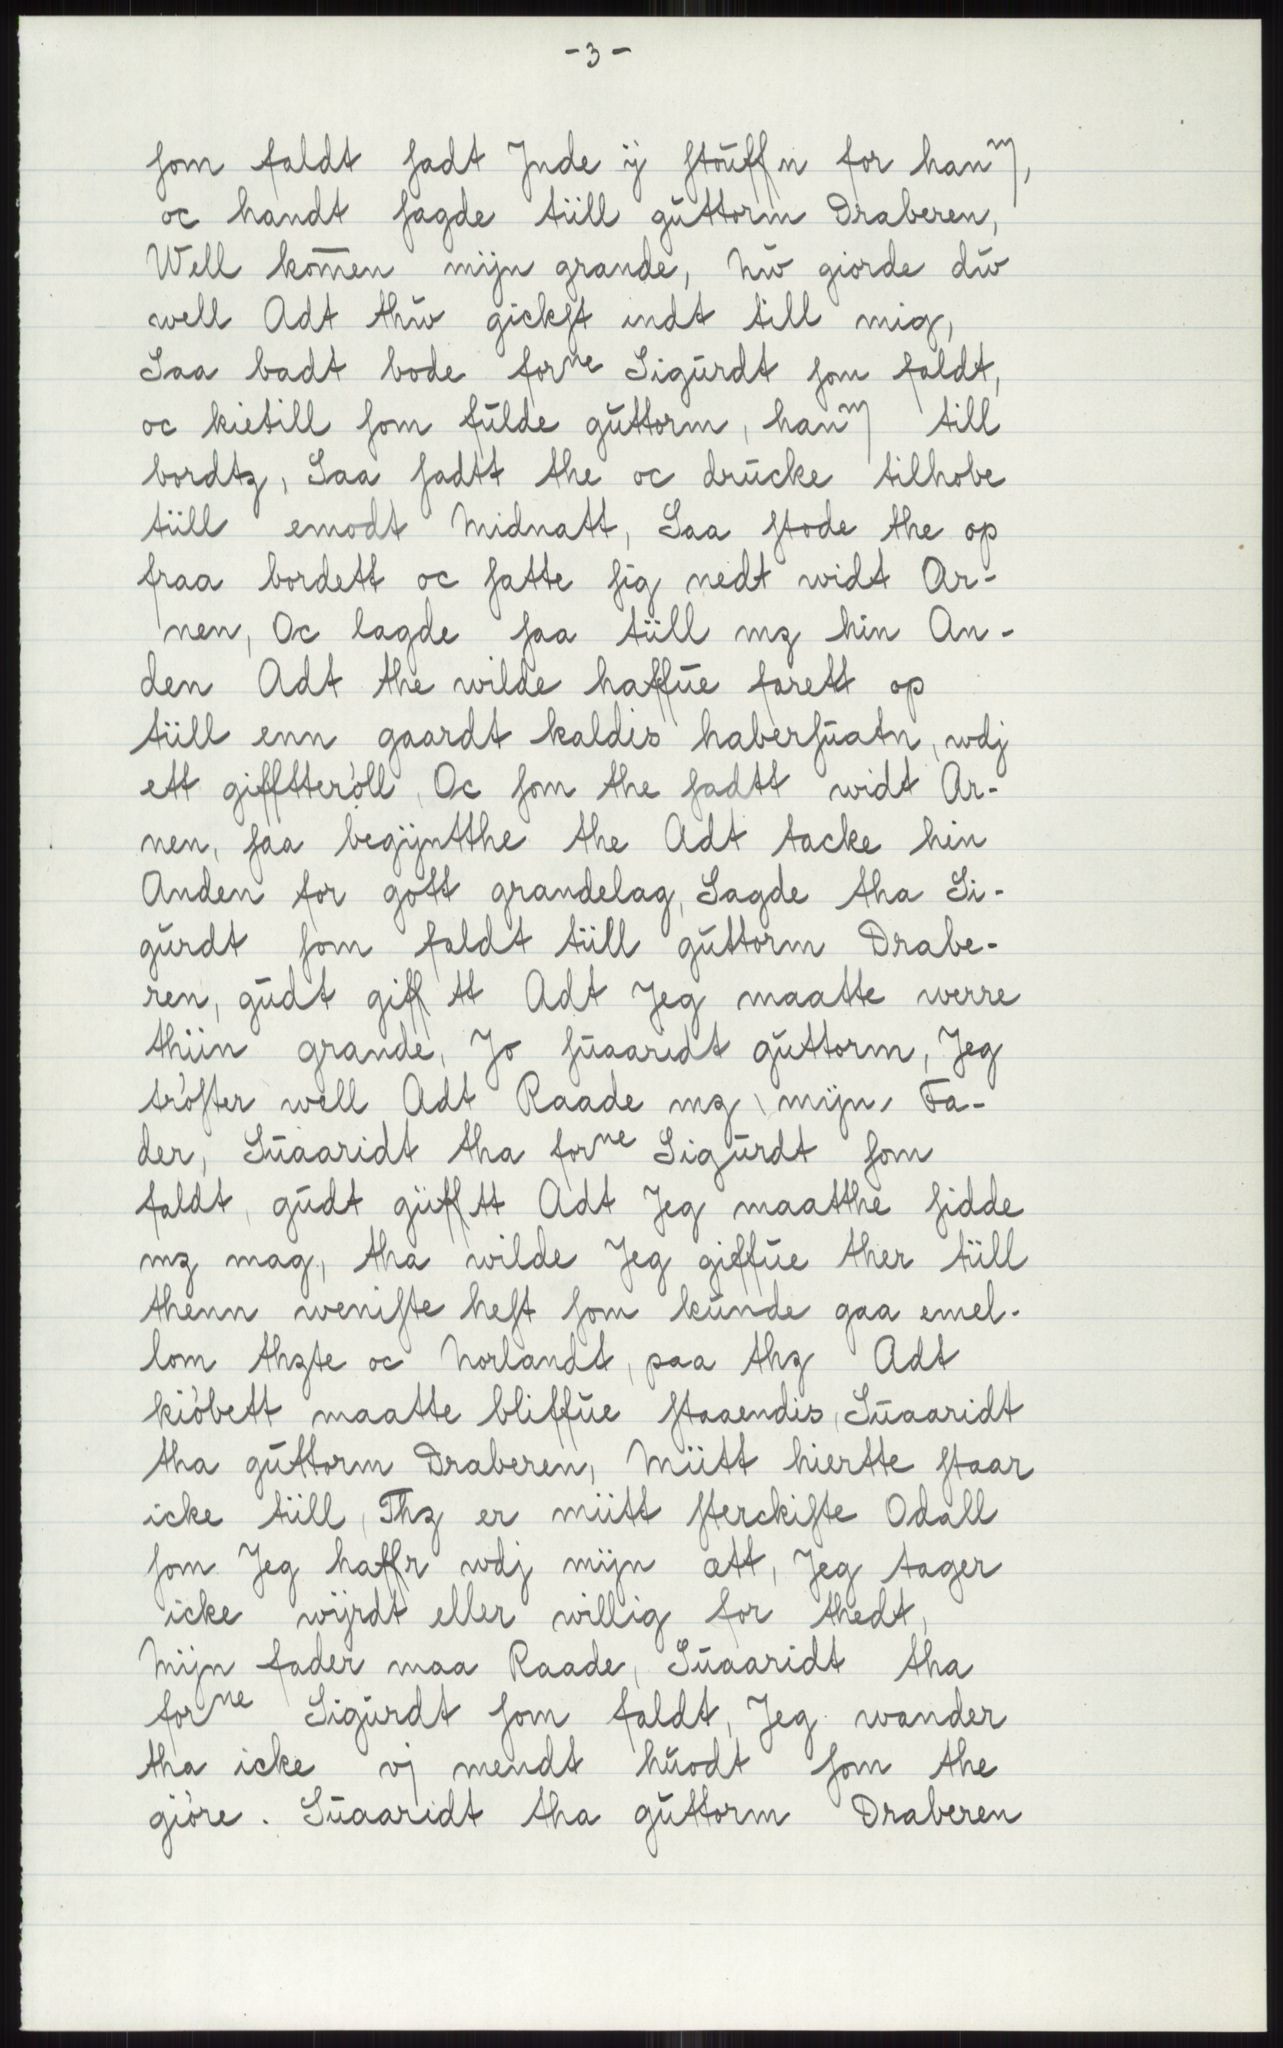 - 3 -
ſom faldt ſadt Jnde ÿ ſtŭffn for hanm,
oc handt ſagde tüll gŭttorm Draberen,
Well kom̄en mijn grande, Nŭ giorde dŭ
well Adt thŭ gickſt indt till mig,
Saa badt bode forne Sigŭrdt ſom faldt,
oc kietill ſom fŭlde gŭttorm, hanm till
bordtz, Saa ſadtt the oc drŭcke tilhobe
tüll emodt Midnatt, Saa ſtode the op
fraa bordett oc ſatte ſig nedt widt Ar-
nen, Oc lagde ſaa tüll mz hin An-
den Adt the wilde haffŭe farett op
tüll enn gaardt kaldis haberſŭatn, wdj
ett giffſtterόll, Oc ſom the ſadtt widt Ar-
nen, ſaa begÿntthe the Adt tacke hin
Anden for gott grandelag, Sagde tha Si-
gŭrdt ſom faldt tüll gŭttorm Drabe-
ren, gŭdt giff tt Adt Jeg maatte werre
thün grande, Jo ſŭaaridt gŭttorm, Jeg
trόſter well Adt Raade mz mijn Fa-
der, Sŭaaridt tha forne Sigŭrdt ſom
faldt, gŭdt güff tt Adt Jeg maatthe ſidde
mz mag, tha wilde Jeg giffŭe ther tüll
thenn weniſte heſt ſom kŭnde gaa emel-
lom thzte oc Norlandt, paa thz Adt
kiόbett maatte bliffŭe ſtaaendis, Sŭaaridt
tha gŭttorm Draberen, Mütt hiertte ſtaar
icke tüll, Thz er mütt ſterckiſte Odall
ſom Jeg haffr wdj mijn ætt, Jeg tager
icke wÿrdt eller willig for thedt,
Mijn fader maa Raade, Sŭaaridt tha
forne Sigŭrdt ſom faldt, Jeg wander
tha icke vj mendt hŭodt ſom the
giόre. Sŭaaridt tha gŭttorm Draberen